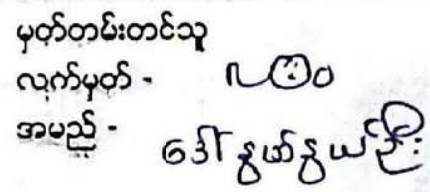 မှတ်တမ်းတင်သူ
လက်မှတ် -
အမည် - ဒေါ်နွယ်နွယ်ဦး